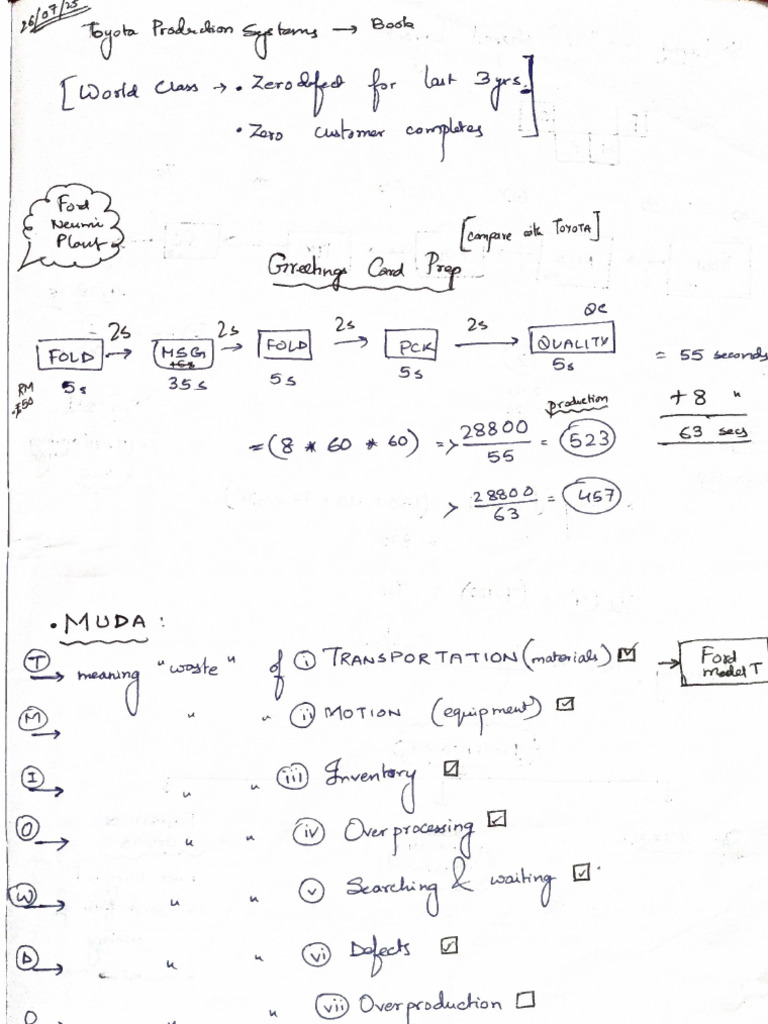 26/07/25
Toyota Production Systems → Book
[World Class → • Zero defect for last 3 yrs.
• Zero customer completes]
Ford
Neumi
Plant
[compare with TOYOTA]
Greetings Card Prep
QC
FOLD → 2s MSG → 2s FOLD → 2s PCK → 2s QUALITY
5s 35s 5s 5s 5s = 55 seconds
RM
+ 8 "
63 secs
production
= (8 * 60 * 60) => 28800/55 = 523
> 28800/63 = 457
• MUDA :
T → meaning "waste" of i TRANSPORTATION (materials) ☑ → Ford model T
M → " " ii MOTION (equipment) ☑
I → " " iii Inventory ☑
O → " " iv Overprocessing ☑
W → " " v Searching & waiting ☑
D → " " vi Defects ☑
O " vii Overproduction ☐